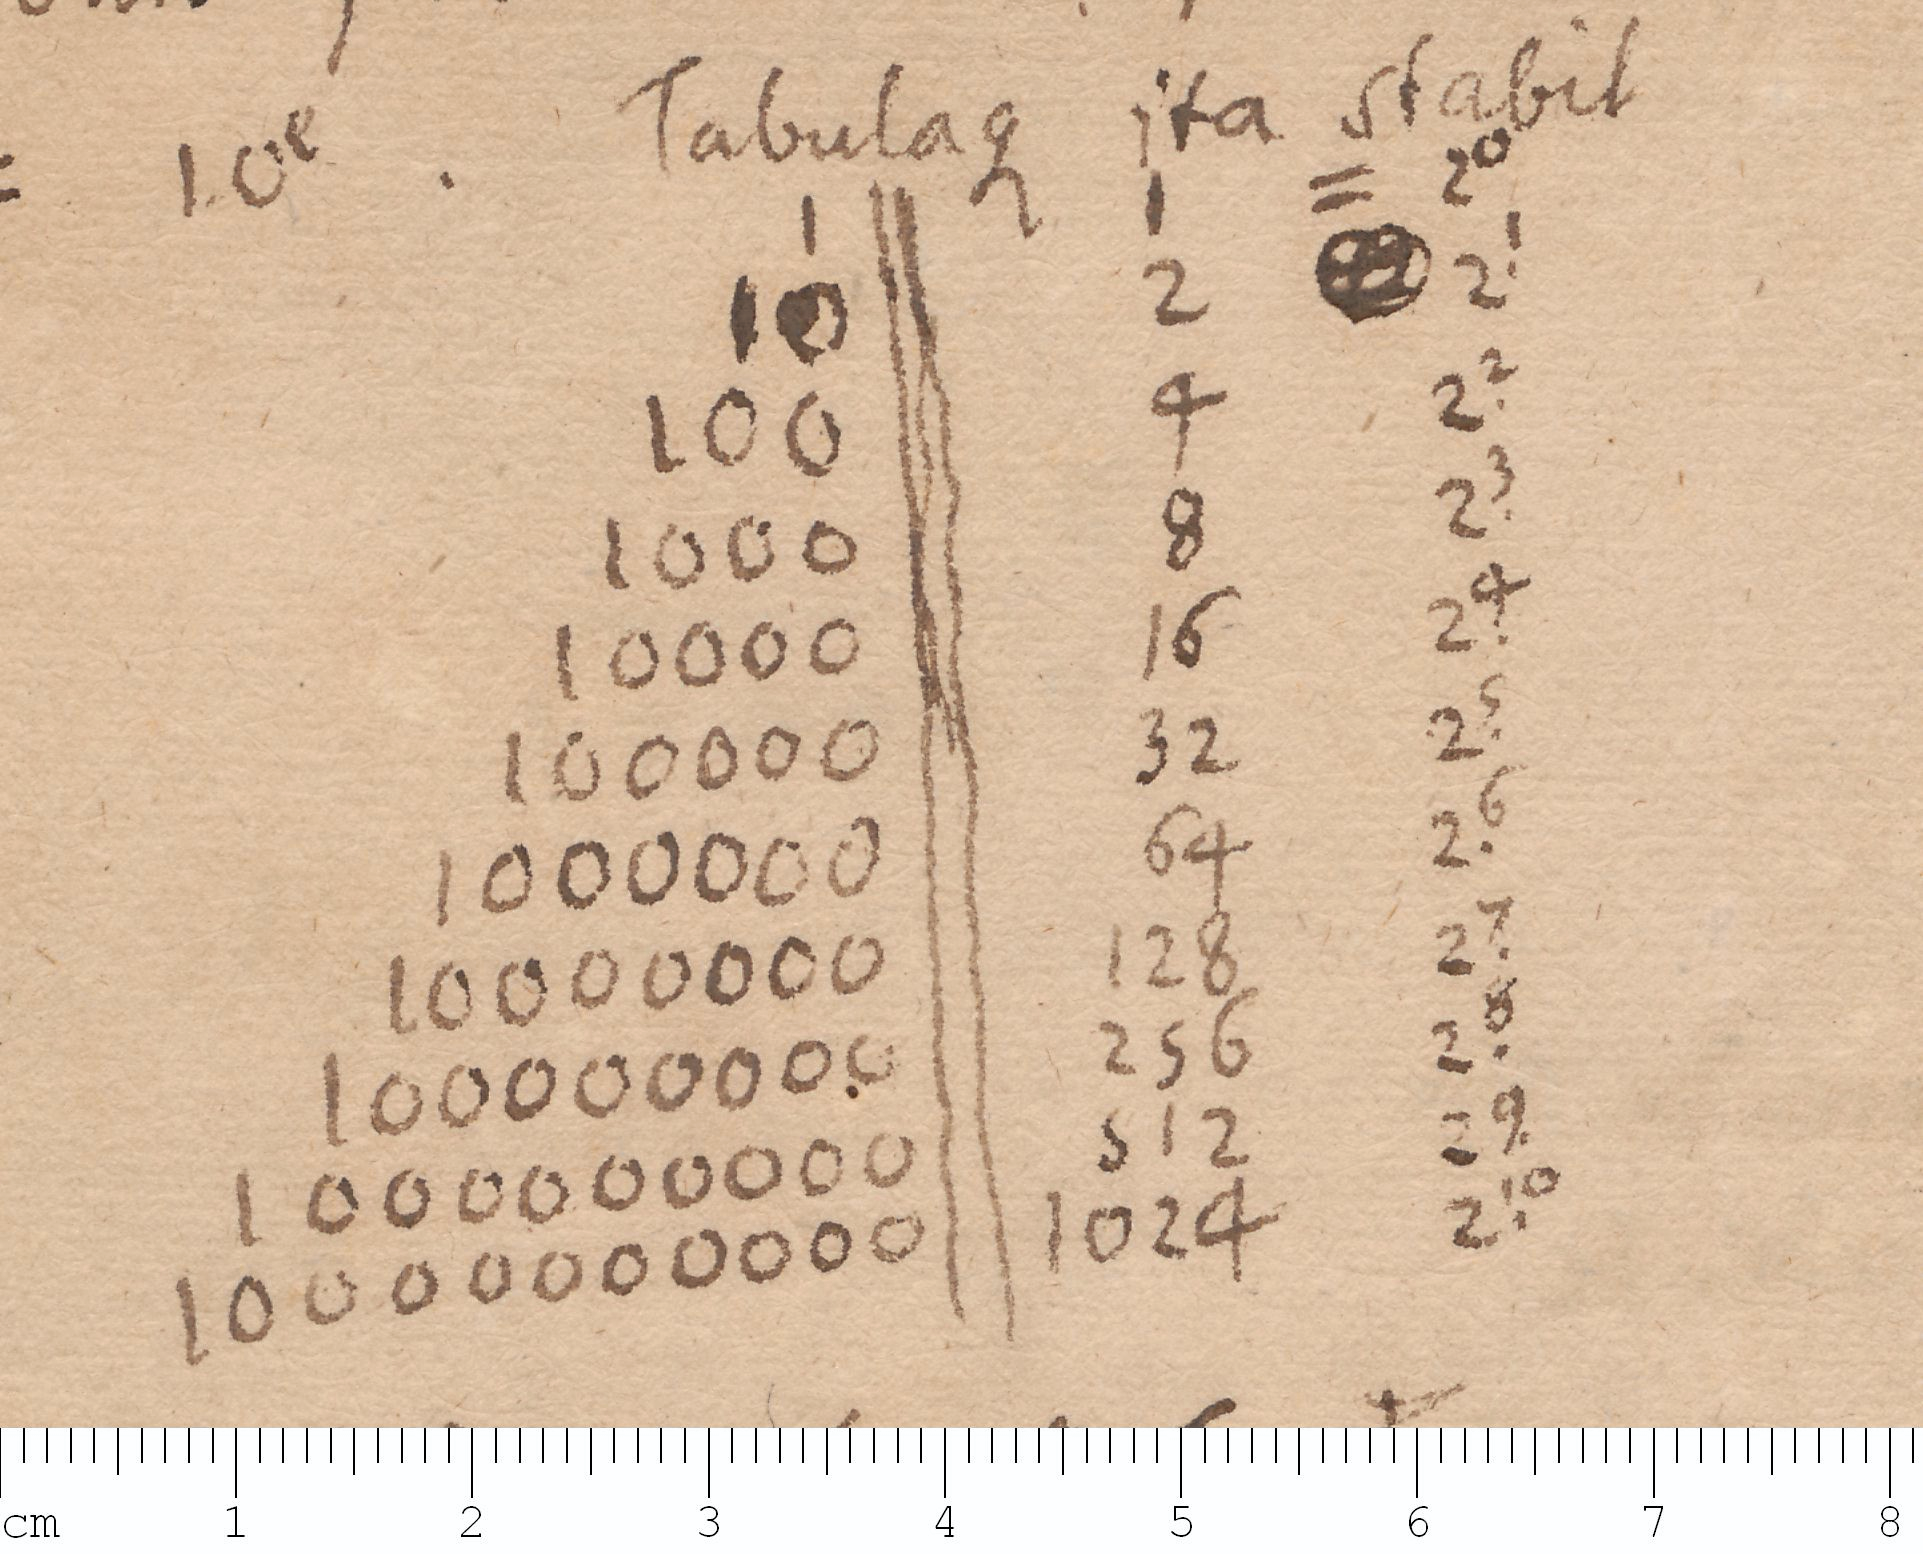 Tabulaq ita stabit
= 10^e .
1 1 = 2^0
10 2 2^1
100 4 2^2
1000 8 2^3
10000 16 2^4
100000 32 2^5
1000000 64 2^6
10000000 128 2^7
100000000 256 2^8
1000000000 512 2^9
10000000000 1024 2^10
cm 1 2 3 4 5 6 7 8